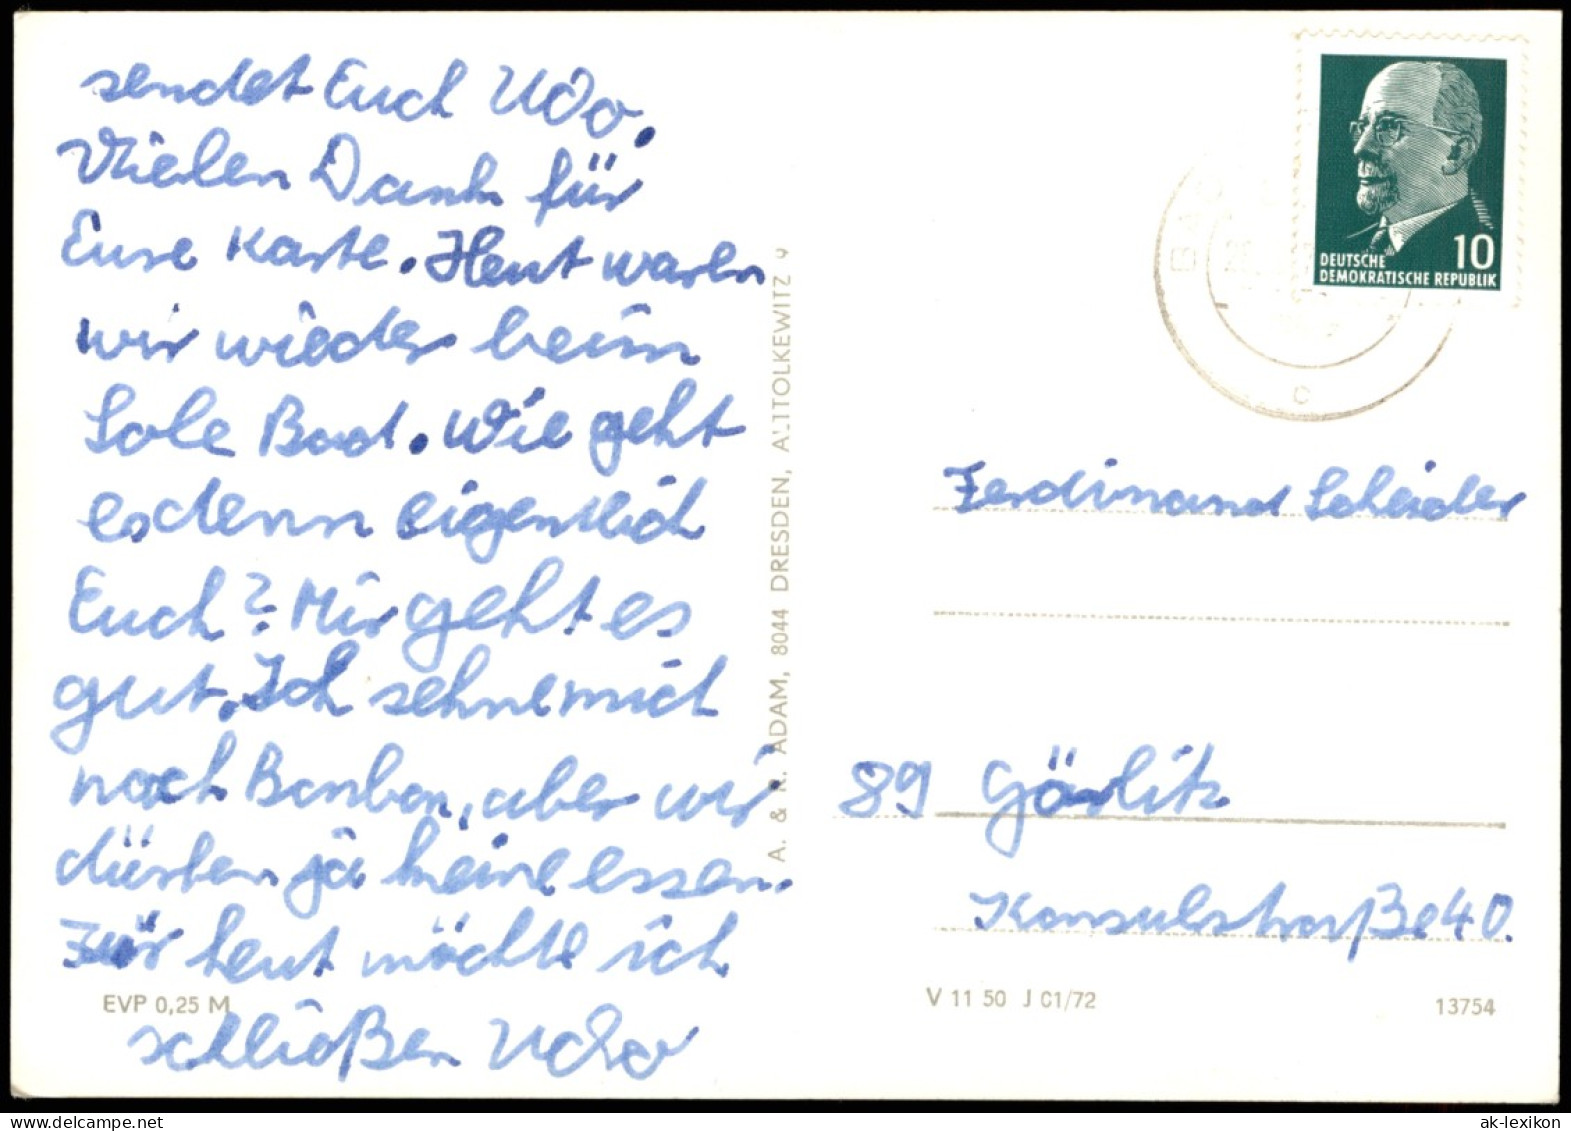 sendet Euch Udo.
Vielen Dank für
Eure Karte. Heut waren
wir wieder beim
Sole Bad. Wie geht
es denn eigentlich
Euch? Mir geht es
gut. Ich sehne mich
nach Bonbon, aber wir
dürfen ja keine essen.
Für heut möchte ich
schließen Udo
EVP 0,25 M
A. & R. ADAM, 8044 DRESDEN, ALTTOLKEWITZ 9
DEUTSCHE
DEMOKRATISCHE REPUBLIK
10
Ferdinand Scheider
89 Görlitz
Konsulstraße 40.
V 11 50 J C1/72
13754
ak-lexikon